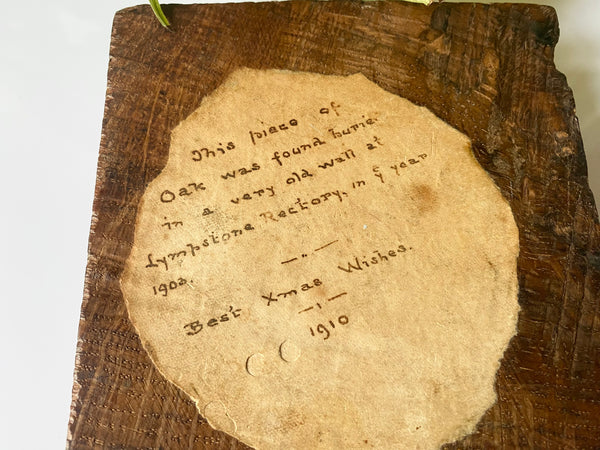 This piece of
Oak was found burie
in a very old wall at
Lympstone Rectory, in ye year
1903.
Best Xmas Wishes.
1910